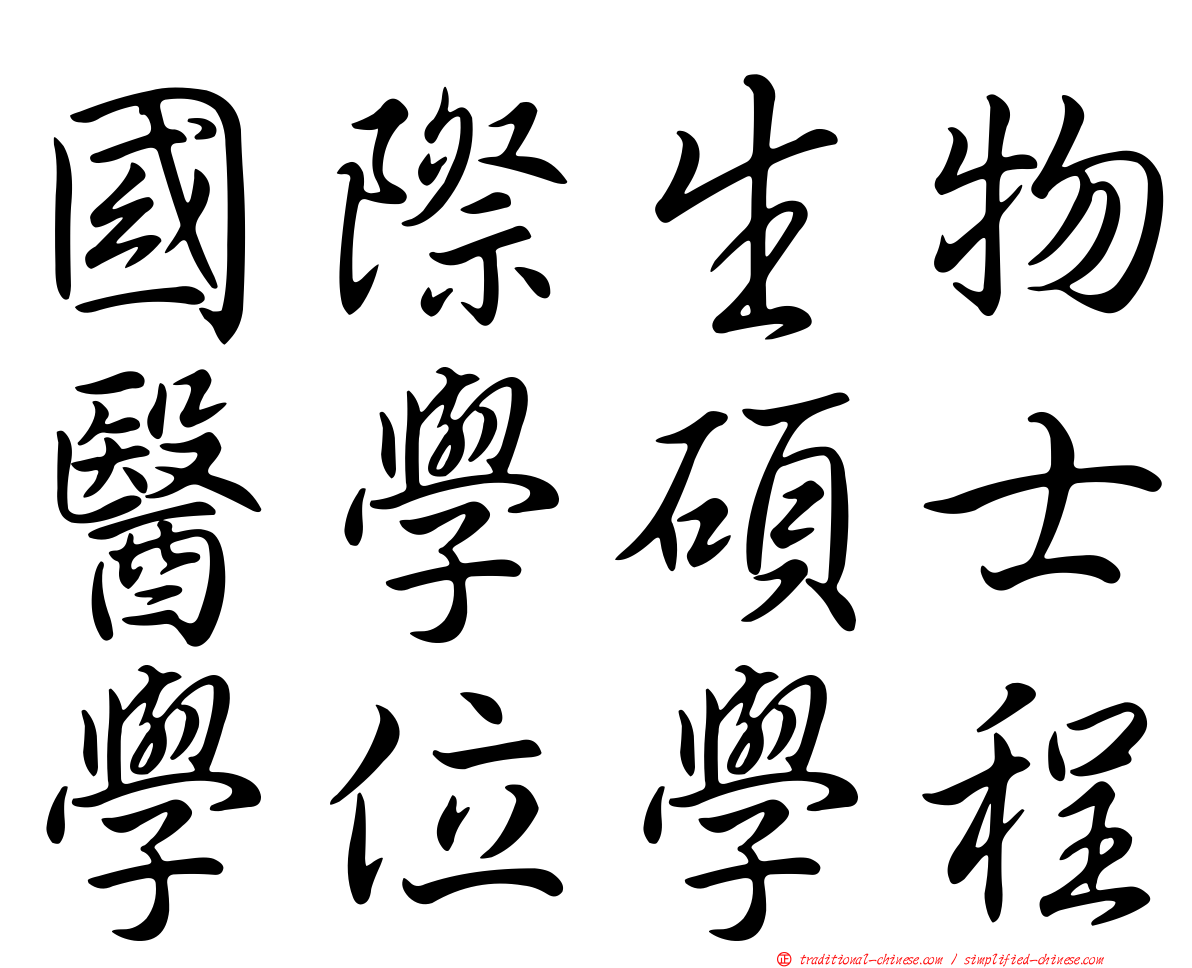 國際生物
醫學碩士
學位學程
正 traditional-chinese.com / simplified-chinese.com